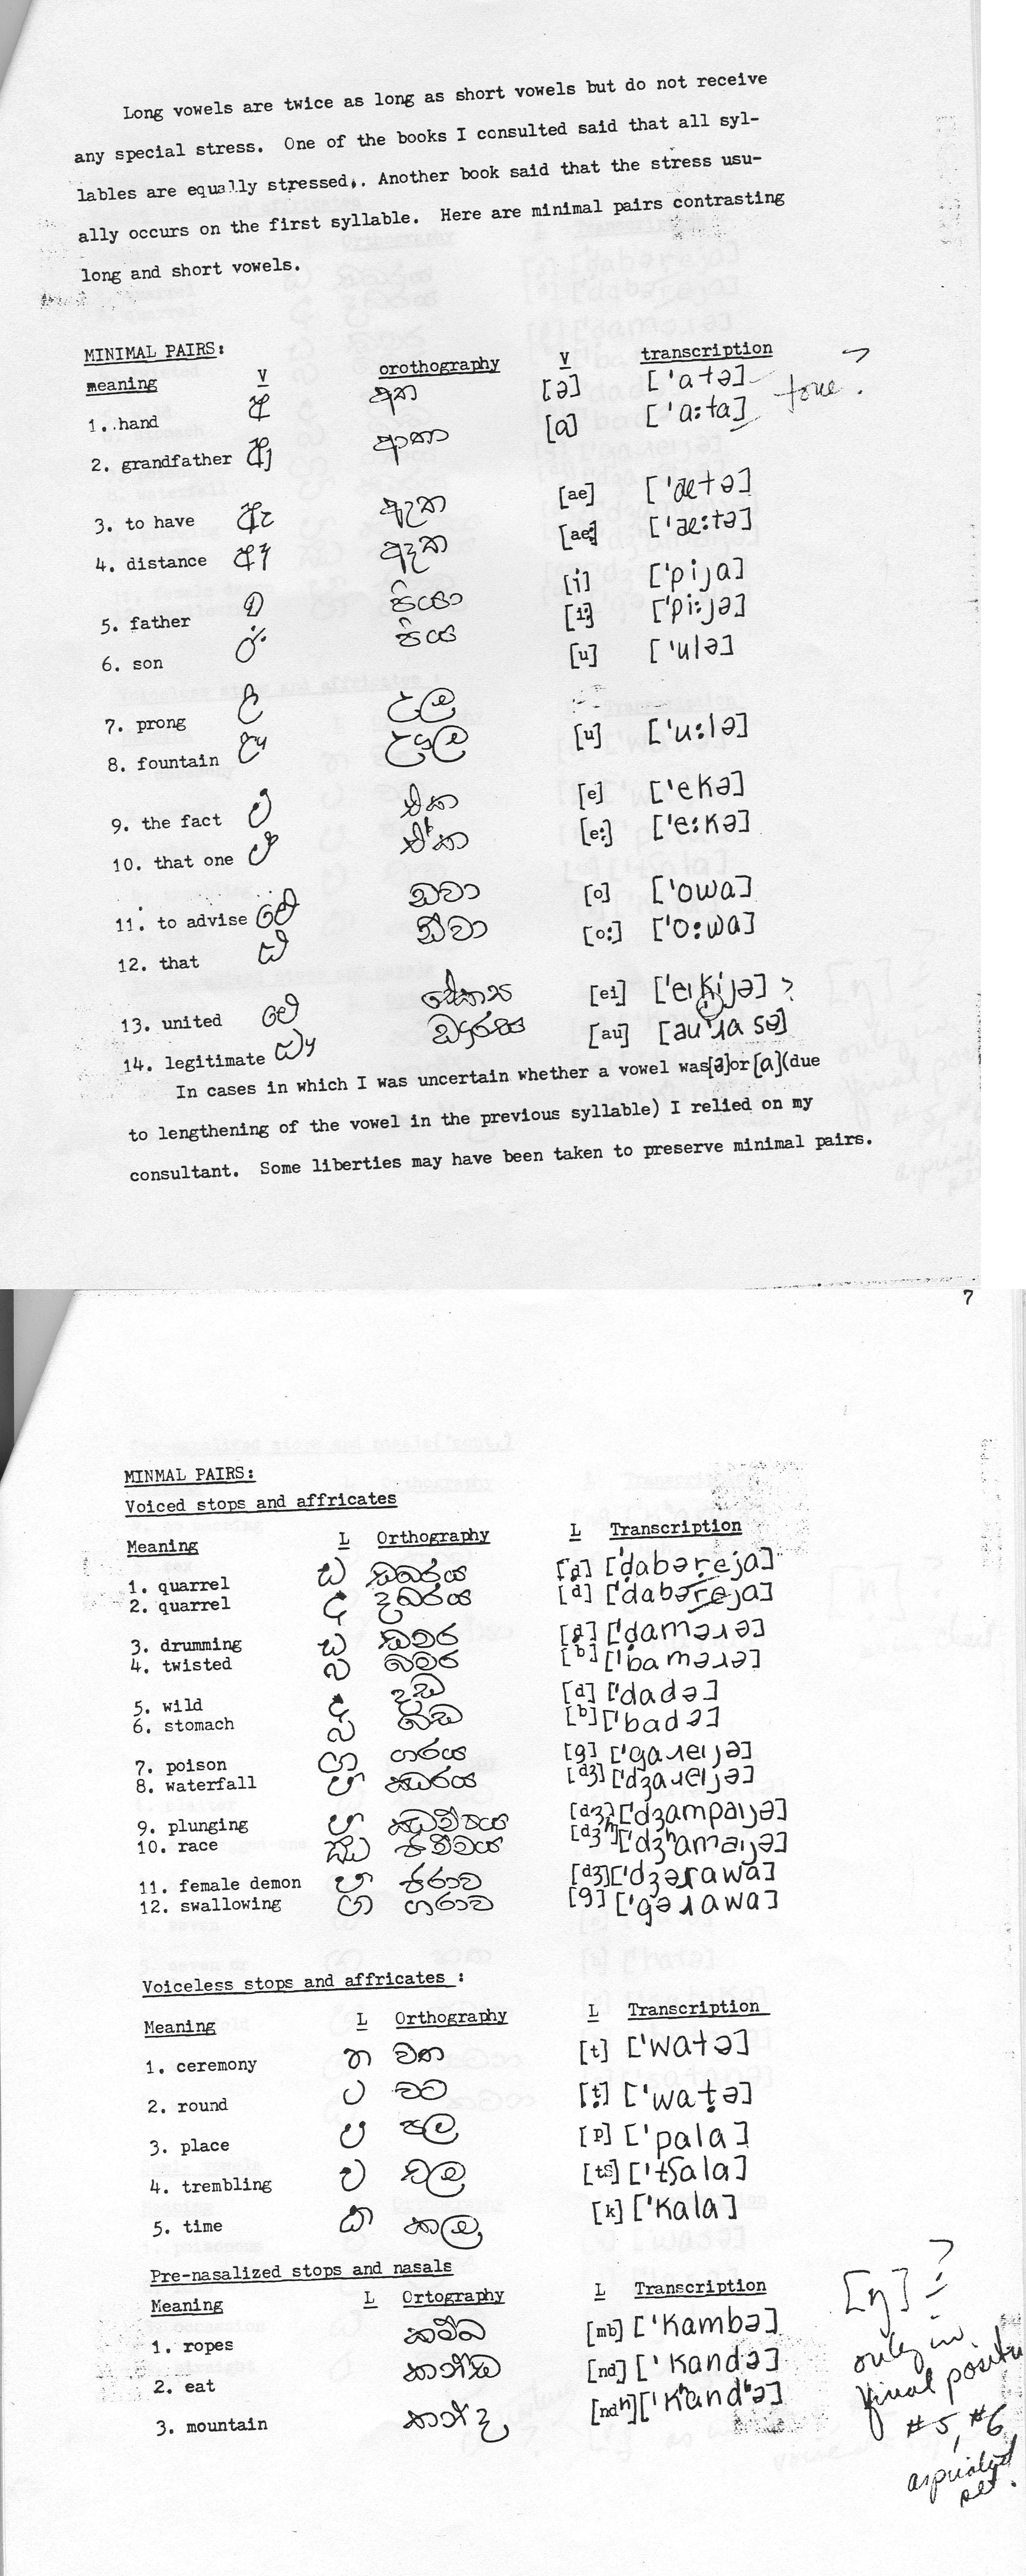 Long vowels are twice as long as short vowels but do not receive
any special stress. One of the books I consulted said that all syl-
lables are equally stressed. Another book said that the stress usu-
ally occurs on the first syllable. Here are minimal pairs contrasting
long and short vowels.
MINIMAL PAIRS:
meaning V orothography V transcription
1. hand අ අත [ə] ['atə]
tone?
2. grandfather ආ ආතා [a] ['a:ta]
3. to have ඇ ඇත [ae] ['ætə]
4. distance ඈ ඈත [ae:] ['æ:tə]
5. father ඉ පියා [i] ['pija]
6. son ඊ පිය [i:] ['pi:jə]
7. prong උ උල [u] ['ulə]
8. fountain ඌ උෟල [u] ['u:lə]
9. the fact එ එක [e] ['ekə]
10. that one ඒ ඒක [e:] ['e:kə]
11. to advise ඔවා [o] ['owa]
12. that ඕවා [o:] ['o:wa]
13. united [ei] ['eikijə] ?
14. legitimate ඖරස [au] [au'ɹa sə]
In cases in which I was uncertain whether a vowel was[ə]or[a](due
to lengthening of the vowel in the previous syllable) I relied on my
consultant. Some liberties may have been taken to preserve minimal pairs.
7
MINMAL PAIRS:
Voiced stops and affricates
Meaning L Orthography L Transcription
1. quarrel ඩ ඩබරය [ḍ] ['ḍabəṛeja]
2. quarrel ද දබරය [d] ['dabəreja]
3. drumming ඩ ඩමර [ḍ] ['ḍaməɹə]
4. twisted බ බමර [b] ['baməɹə]
5. wild ද දඩ [d] ['dadə]
6. stomach බ බඩ [b] ['badə]
7. poison ග ගරය [g] ['gaɹeıjə]
8. waterfall ඣරය [dʒ] ['dʒaɹeıjə]
9. plunging [dʒ] ['dʒampaıjə]
10. race ඣ [dʒʰ] ['dʒʰamaıjə]
11. female demon ජරාව [dʒ] ['dʒəɹawa]
12. swallowing ග ගරාව [g] ['gəɹawa]
Voiceless stops and affricates :
Meaning L Orthography L Transcription
1. ceremony ත වත [t] ['watə]
2. round ට වට [ṭ] ['waṭə]
3. place ප පල [p] ['pala]
4. trembling ච චල [ts] ['tʃala]
5. time ක කල [k] ['kala]
Pre-nasalized stops and nasals
Meaning L Ortography L Transcription
1. ropes කම්බ [mb] ['kambə]
2. eat කන්ඩ [nd] ['kandə]
3. mountain කන්ද [ndʰ] ['kʰandʰə]
[ŋ]?
only in
final position
#5, #6
aspirated
set.